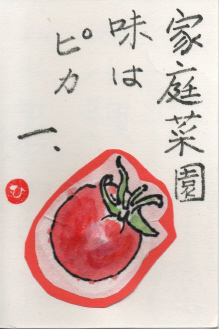 家庭菜園
味は
ピカ
一、
ひ